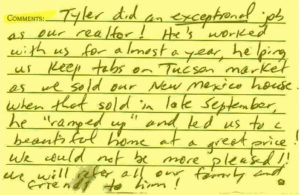 COMMENTS: Tyler did an exceptional job
as our realtor! He's worked
with us for almost a year, helping
us keep tabs on Tucson market
as we sold our New Mexico house.
When that sold in late September,
he "ramped up" and led us to a
beautiful home at a great price!
We could not be more pleased!!
We will refer all our family and
friends to him!